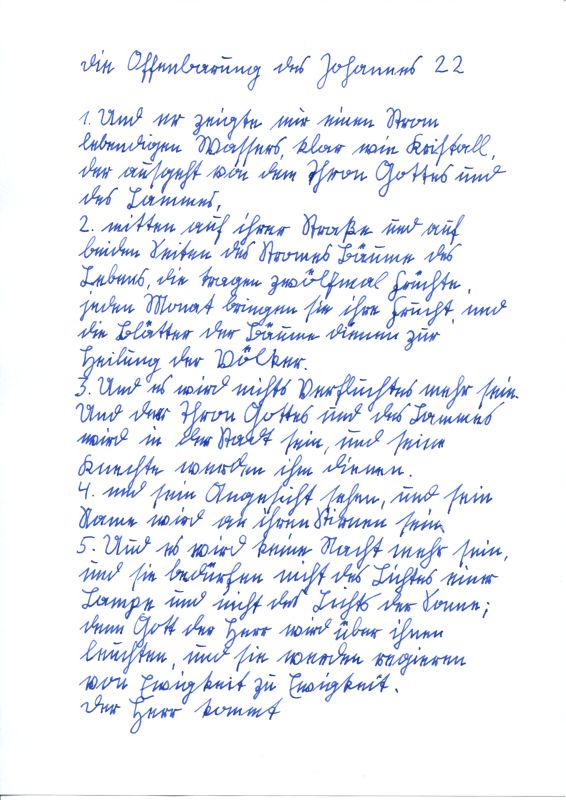 die Offenbarung des Johannes 22
1. Und er zeigte mir einen Strom
lebendigen Wassers, klar wie Kristall,
der ausgeht von dem Thron Gottes und
des Lammes,
2. mitten auf ihrer Straße und auf
beiden Seiten des Stromes Bäume des
Lebens, die tragen zwölfmal Früchte,
jeden Monat bringen sie ihre Frucht, und
die Blätter der Bäume dienen zur
Heilung der Völker.
3. Und es wird nichts Verfluchtes mehr sein.
Und der Thron Gottes und des Lammes
wird in der Stadt sein, und seine
Knechte werden ihm dienen.
4. und sein Angesicht sehen, und sein
Name wird an ihren Stirnen sein
5. Und es wird keine Nacht mehr sein,
und sie bedürfen nicht des Lichtes einer
Lampe und nicht des Lichts der Sonne;
denn Gott der Herr wird über ihnen
leuchten, und sie werden regieren
von Ewigkeit zu Ewigkeit.
Der Herr kommt